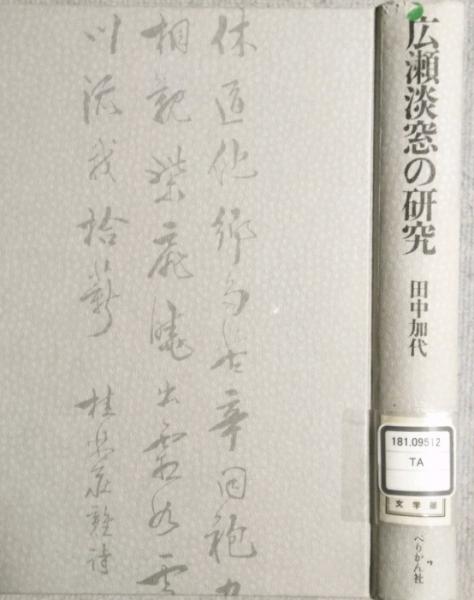 休道他郷多苦辛同袍
相親柴扉暁出霜如雪
川流我拾薪 桂林荘雑詩
広瀬淡窓の研究
田中加代
181.09512
TA
文学部
ぺりかん社